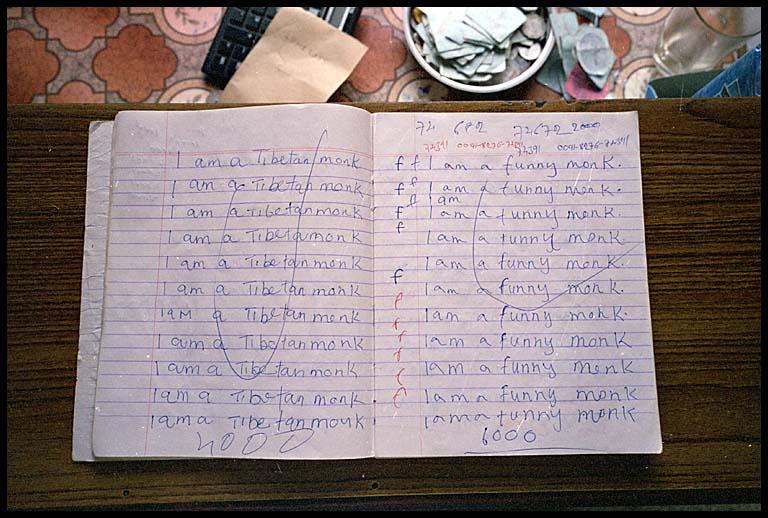 I am a Tibetan monk
I an a Tibetan monk
I am a Tibetan monk
I am a Tibetan monk
I am a Tibetan monk
I am a Tibetan monk
I am a Tibetan monk
I am a Tibetan monk
I am a Tibetan monk
I am a Tibetan monk.
I am a Tibetan monk
4000
74 682 74672 2000
f f I am a funny monk.
f f I am a funny monk.
am
f I am a funny monk.
f I am a funny monk
I am a funny monk.
f I am a funny monk.
f I am a funny monk.
f I am a funny monk
f I am a funny monk
f I am a funny monk
I am a funny monk
6000